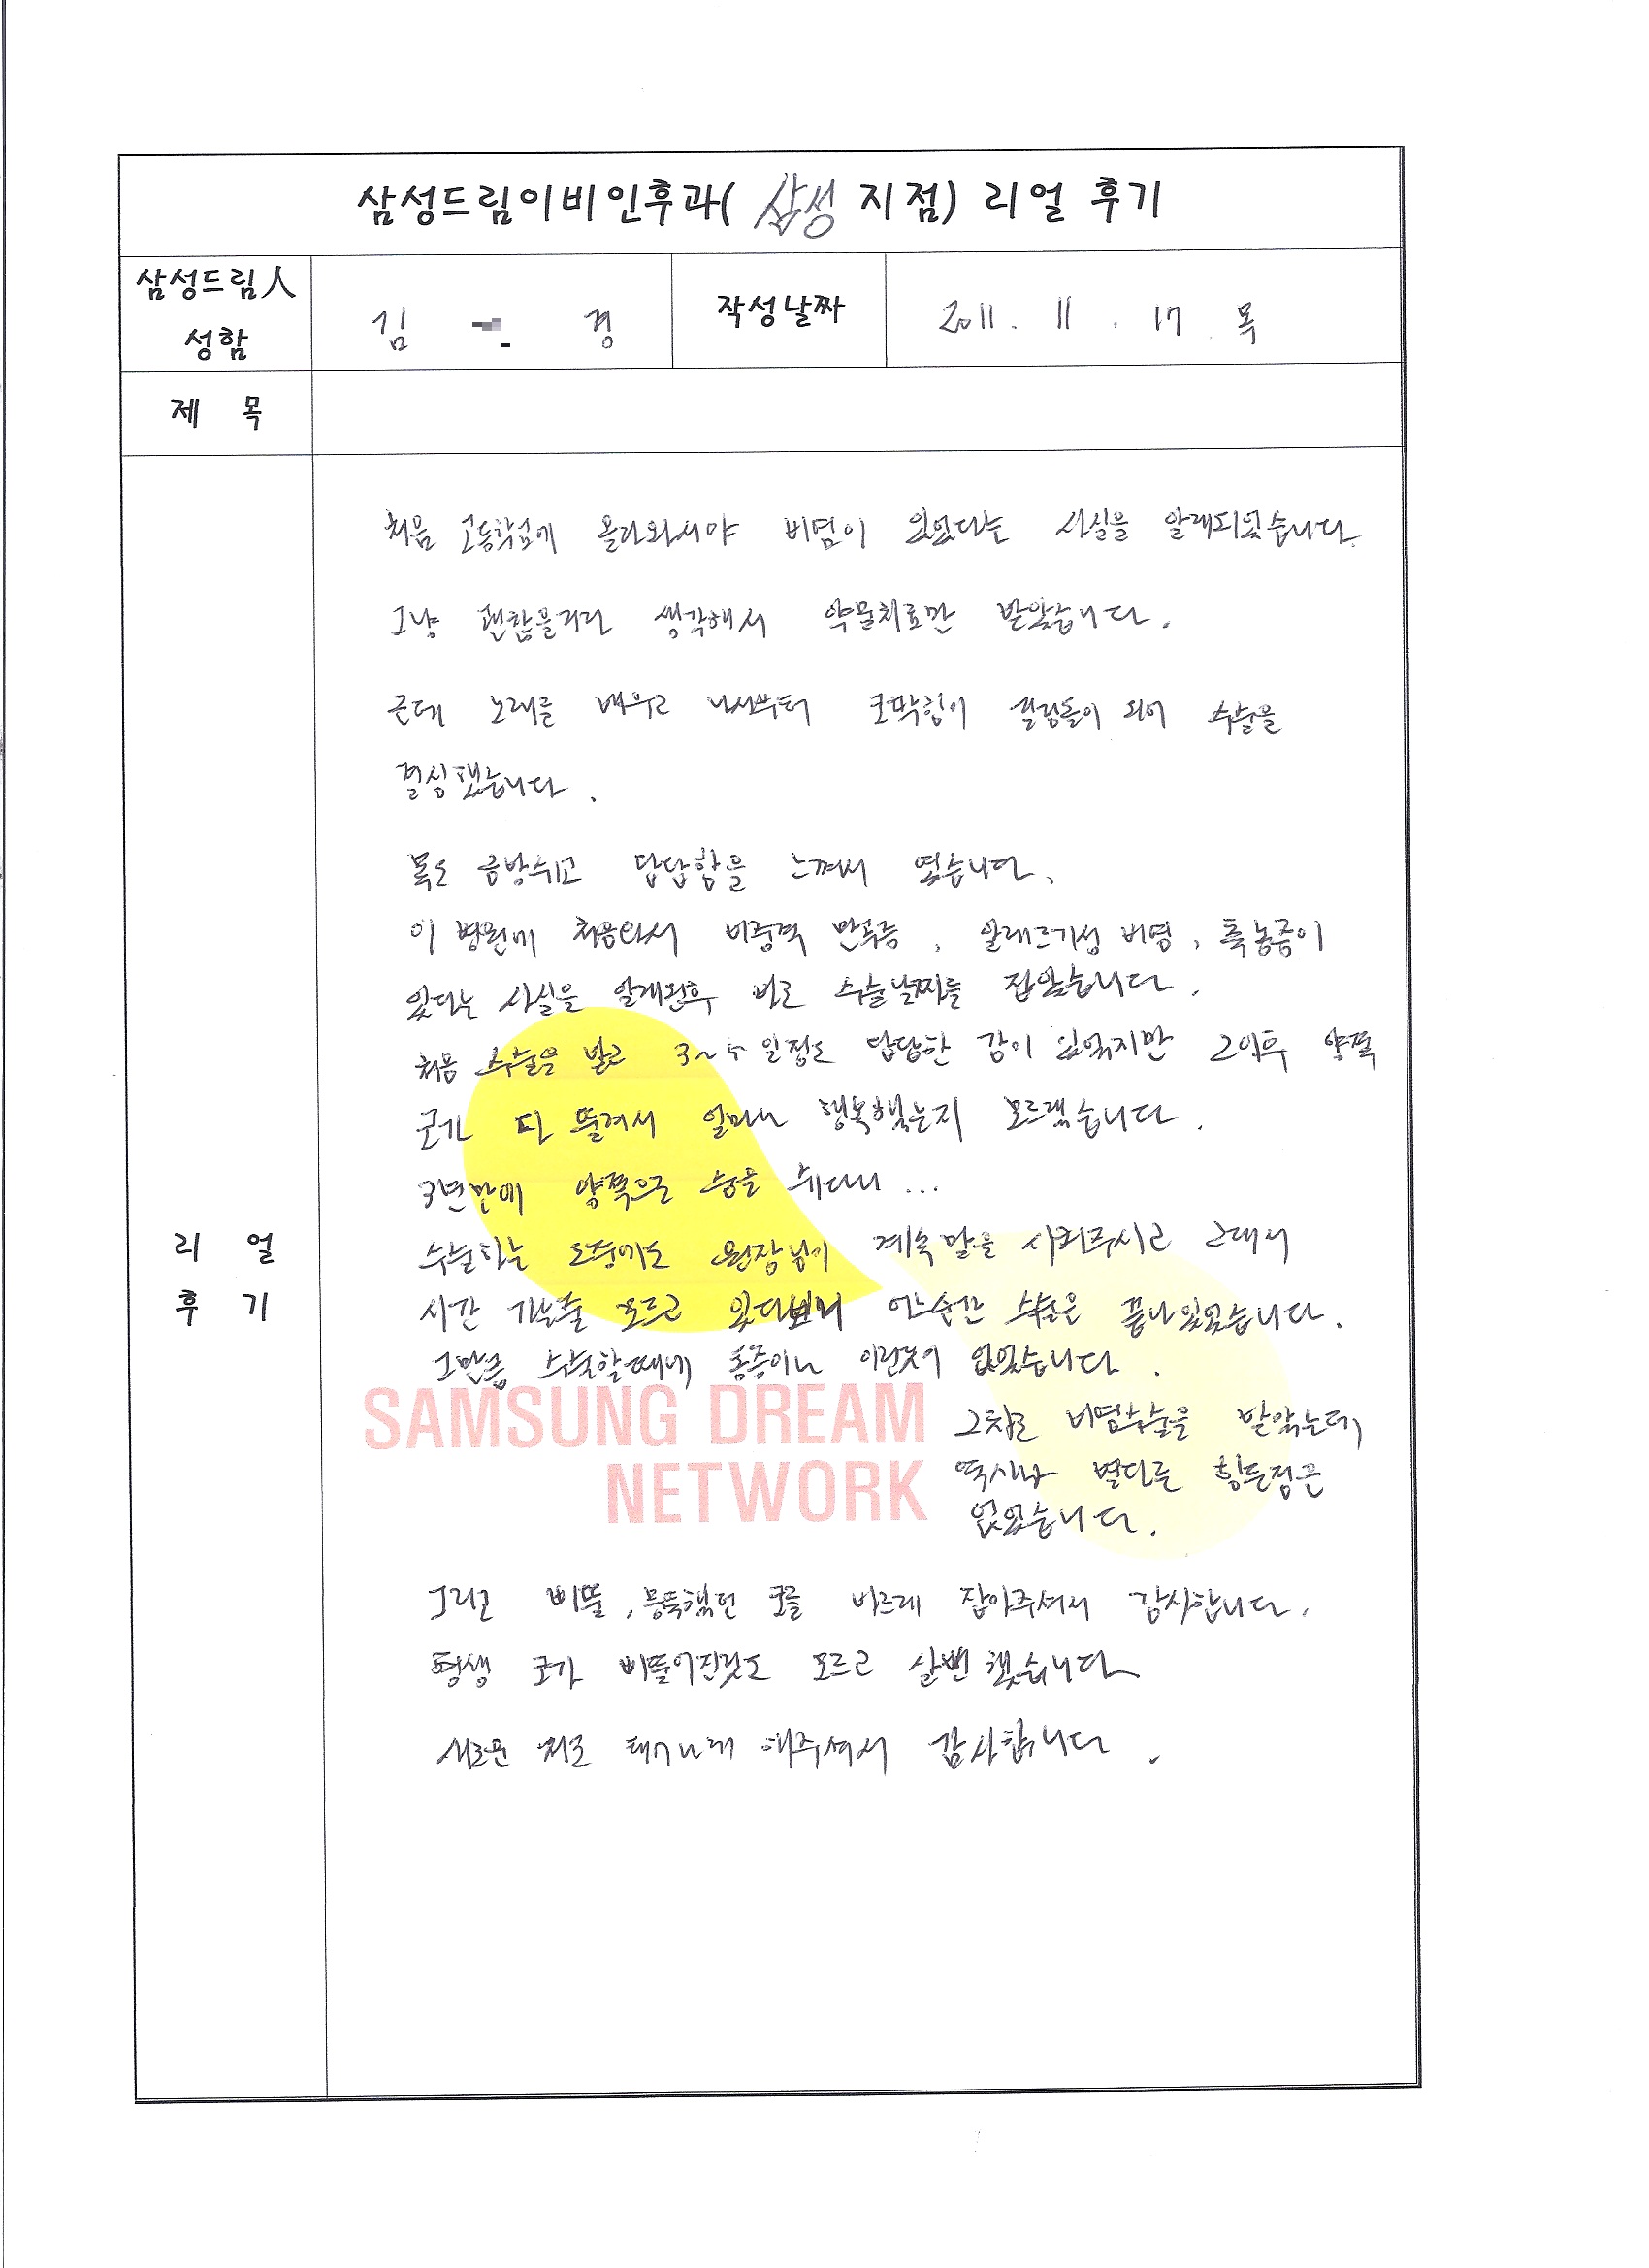 삼성드림이비인후과( 삼성 지점) 리얼 후기
삼성드림人 성함
김 경
작성날짜
2011. 11. 17. 목
제 목
리 얼
후 기
처음 고등학교에 올라와서야 비염이 있었다는 사실을 알게되었습니다.
그냥 괜찮을거라 생각해서 약물치료만 받았습니다.
근데 노래를 배우고 나서부터 코막힘이 걸림돌이 되어 수술을
결심했습니다.
목도 금방쉬고 답답함을 느껴서 였습니다.
이 병원에 처음와서 비중격 만곡증, 알레르기성 비염, 축농증이
있다는 사실을 알게된후 바로 수술날짜를 잡았습니다.
처음 수술을 받고 3~4일정도 답답한 감이 있었지만 그이후 양쪽
코가 다 뚫려서 얼마나 행복했는지 모르겠습니다.
3년만에 양쪽으로 숨을 쉬다니...
수술하는 도중에도 원장님이 계속 말을 시켜주시고 그래서
시간 가는줄 모르고 있다보니 어느순간 수술은 끝나있었습니다.
그만큼 수술할때에 통증이나 이런것이 없었습니다.
그차로 비염수술을 받았는데,
역시나 별다른 힘든점은
없었습니다.
SAMSUNG DREAM
NETWORK
그리고 삐뚤, 뭉툭했던 코를 바르게 잡아주셔서 감사합니다.
평생 코가 삐뚤어진것도 모르고 살뻔 했습니다
새로운 저로 태어나게 해주셔서 감사합니다.